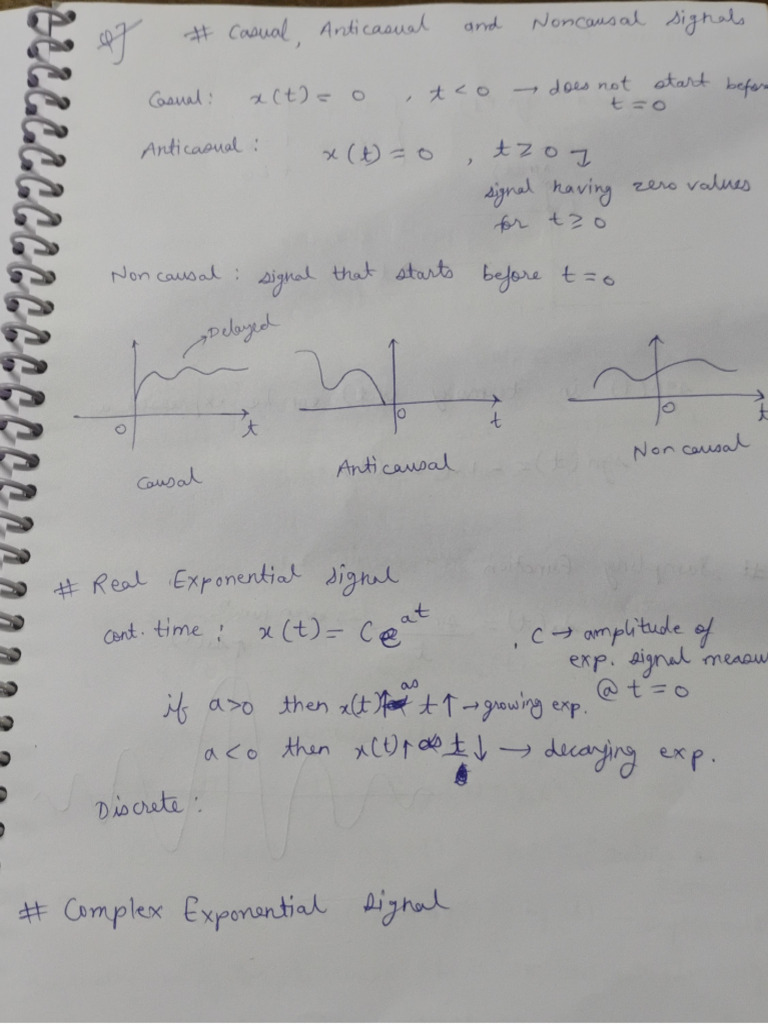 # Casual, Anticasual and Noncausal signals
Casual: x(t) = 0 , t < 0 → does not start before
t = 0
Anticasual : x(t) = 0 , t ≥ 0
signal having zero values
for t ≥ 0
Non causal : signal that starts before t = 0
→ Delayed
0 t
0 t
0 t
Causal
Anticausal
Non causal
# Real Exponential signal
cont. time : x(t) = Ce^at , C → amplitude of
exp. signal measu
@ t = 0
if a>0 then x(t)↑ as t↑ → growing exp.
a<0 then x(t)↑ as t↓ → decaying exp.
Discrete :
# Complex Exponential signal